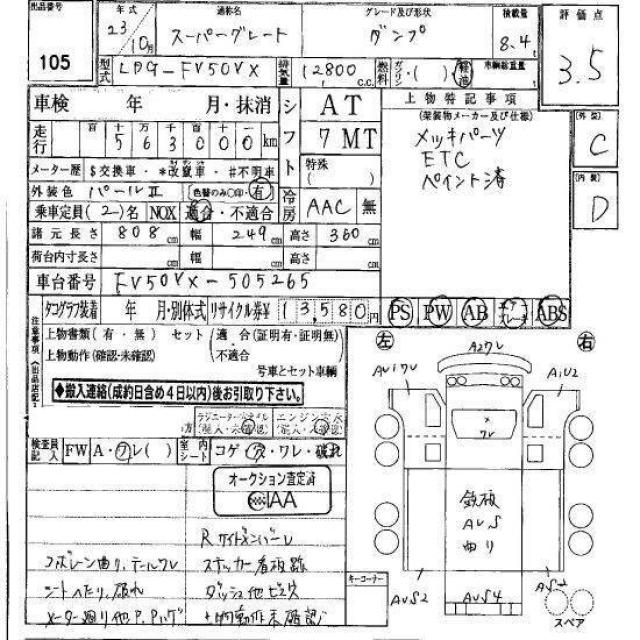 出品番号 年式 通称名 グレード及び形状 積載量 評価点
105 23/10月 スーパーグレート ダンプ 8.4t 3.5
型式 LDG-FV50VX 排気量 12800c.c. 燃料 ガソリン・( )・軽油 車輌総重量
車検 年 月・抹消 シフト AT 上物特記事項
走行 百 十5 万6 千3 000km 7MT (架装物メーカー及び仕様)
メーター歴 $交換車・*改竄車・#不明車 特殊 ( ) メッキパーツ
外装色 パールII [色替のみ○印・有] ETC
乗車定員(2)名 NOX 適合・不適合 冷房 AAC 無 ペイント済
諸元長さ 808cm 幅 249cm 高さ 360cm
荷台内寸長さ cm 幅 cm 高さ cm
車台番号 FV50VX-505265
外装 C
内装 D
タコグラフ装着 年 月・別体式 リサイクル券¥ 13,580円 PS PW AB ABS
注意事項(出品店記入)
上物書類(有・無)セット 適合(証明有・証明無)
上物動作(確認・未確認) 不適合
号車とセット車輌
◆搬入連絡(成約日含め4日以内)後お引取り下さい。
検査員記入 FW A・ワレ( ) 室内シート コゲ・穴・ワレ・破れ
オークション査定済
IAA
Rワイドメンバーレ
コボレーン曲り、テールワレ ステッカー看板跡
シートへたり、破れ ダッシュ他ビス穴
メーター廻り他P.Pハゲ 上物動作未確認
コーナー
左 右
A2ワレ
AU1ワレ A1U2
×
ワレ
鉄板
AUS
曲り
AUS2 AUS4 AUS2
スペア